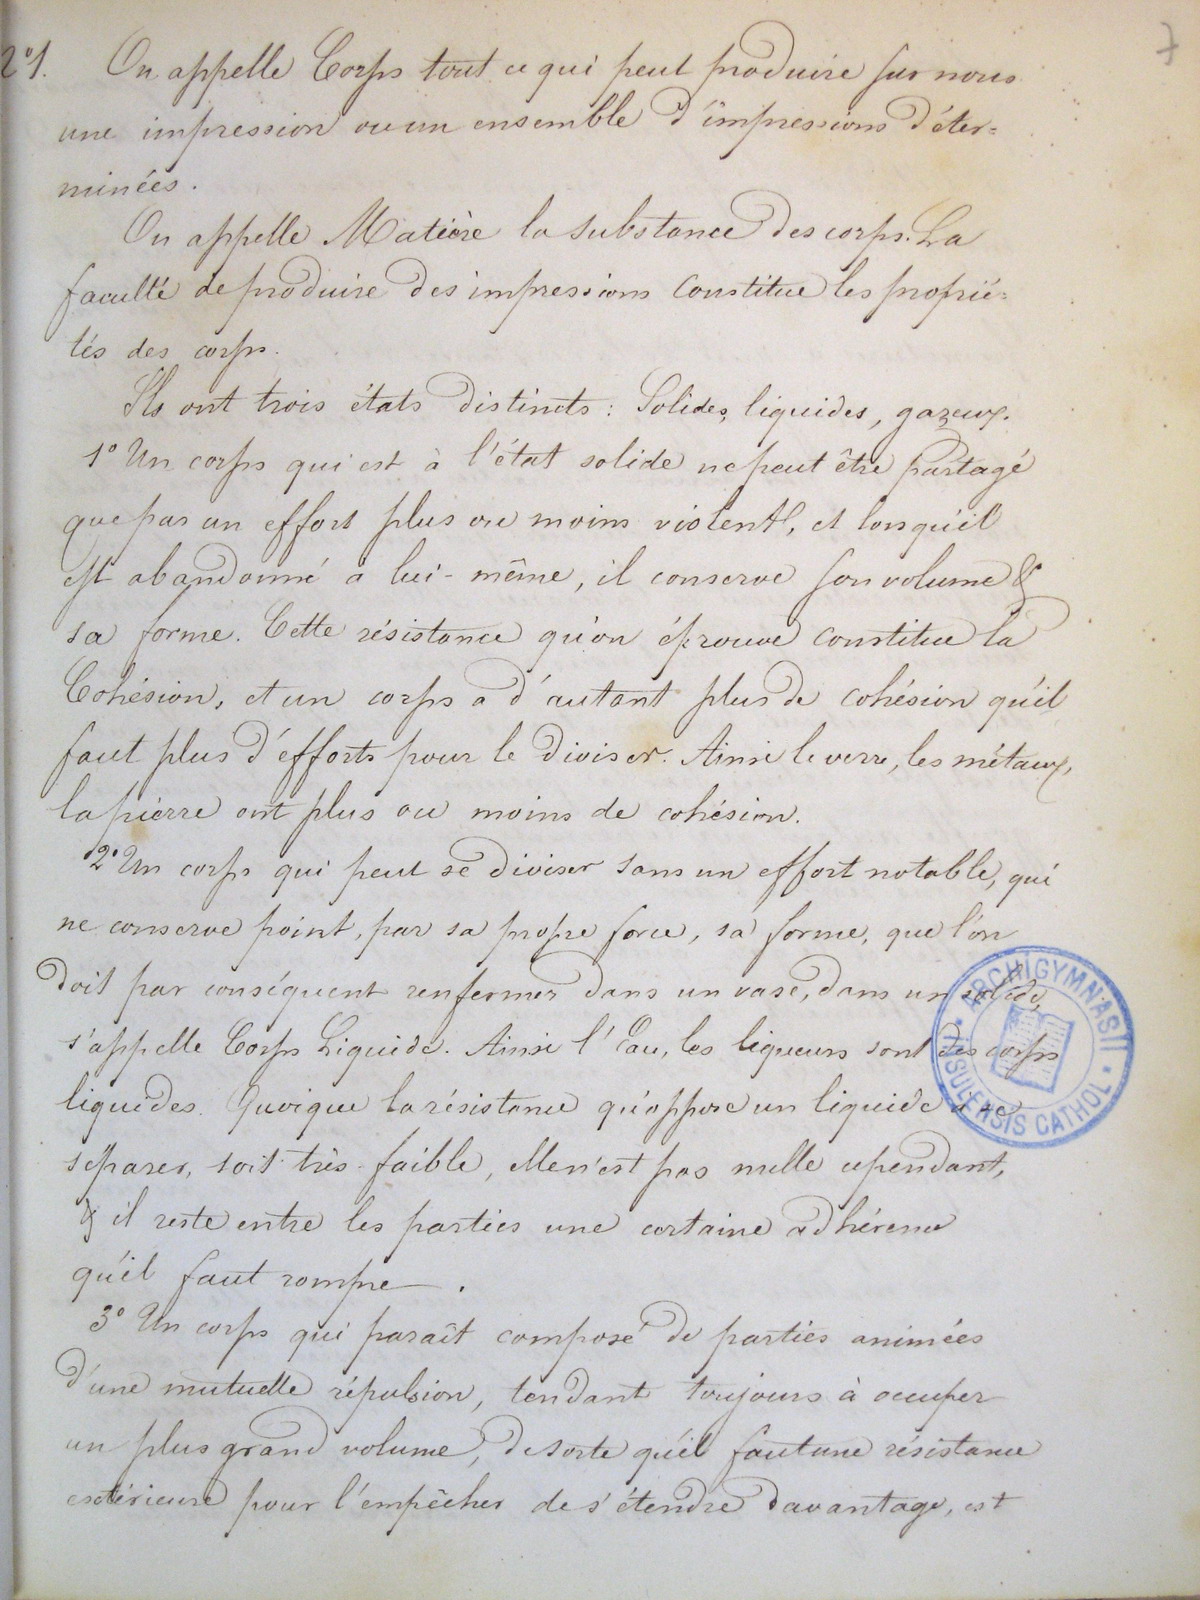 7
2°1. On appelle Corps tout ce qui peut produire sur nous
une impression ou un ensemble d'impressions déter=
minées.
On appelle Matière la substance des corps. La
faculté de produire des impressions constitue les proprié=
tés des corps.
Ils ont trois états distincts : Solides, liquides, gazeux.
1° Un corps qui est à l'état solide ne peut être partagé
que par un effort plus ou moins violent, et lorsqu'il
est abandonné à lui-même, il conserve son volume &
sa forme. Cette résistance qu'on éprouve constitue la
Cohésion, et un corps a d'autant plus de cohésion qu'il
faut plus d'efforts pour le diviser. Ainsi le verre, les métaux,
la pierre ont plus ou moins de cohésion.
2° Un corps qui peut se diviser sans un effort notable, qui
ne conserve point, par sa propre force, sa forme, que l'on
doit par conséquent renfermer dans un vase, dans un solide,
s'appelle Corps Liquide. Ainsi l'Eau, les liqueurs sont des corps
liquides. Quoique la résistance qu'oppose un liquide à se
séparer, soit très-faible, elle n'est pas nulle cependant,
& il reste entre les parties une certaine adhérence
qu'il faut rompre.
3° Un corps qui paraît composé de parties animées
d'une mutuelle répulsion, tendant toujours à occuper
un plus grand volume, de sorte qu'il faut une résistance
extérieure pour l'empêcher de s'étendre davantage, est
ARCHIGYMNASII INSULENSIS CATHOL